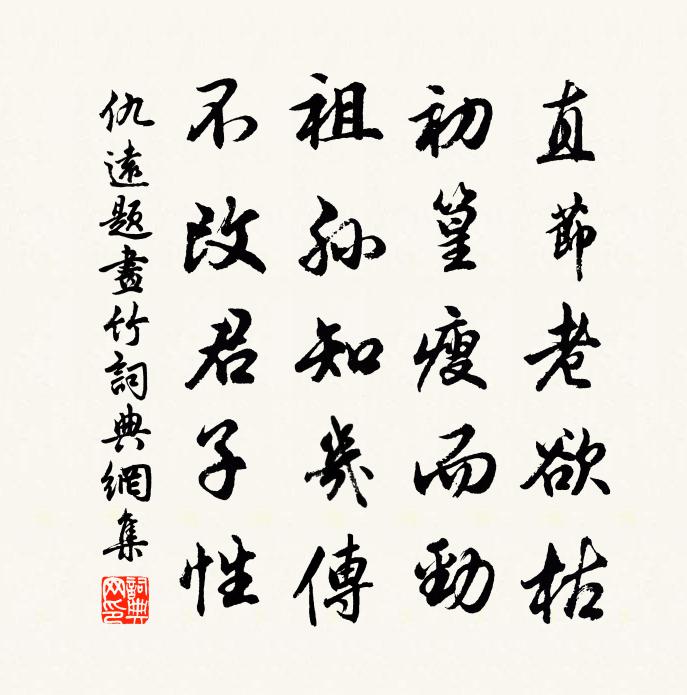 直節老欲枯
初篁瘦而勁
祖孫知幾傳
不改君子性
仇遠題畫竹詞典網集
詞典網印